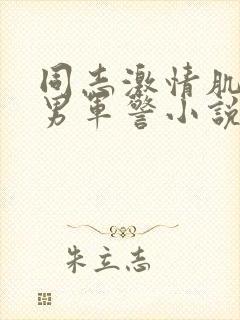 同志激情肌
男军警小说
朱立志